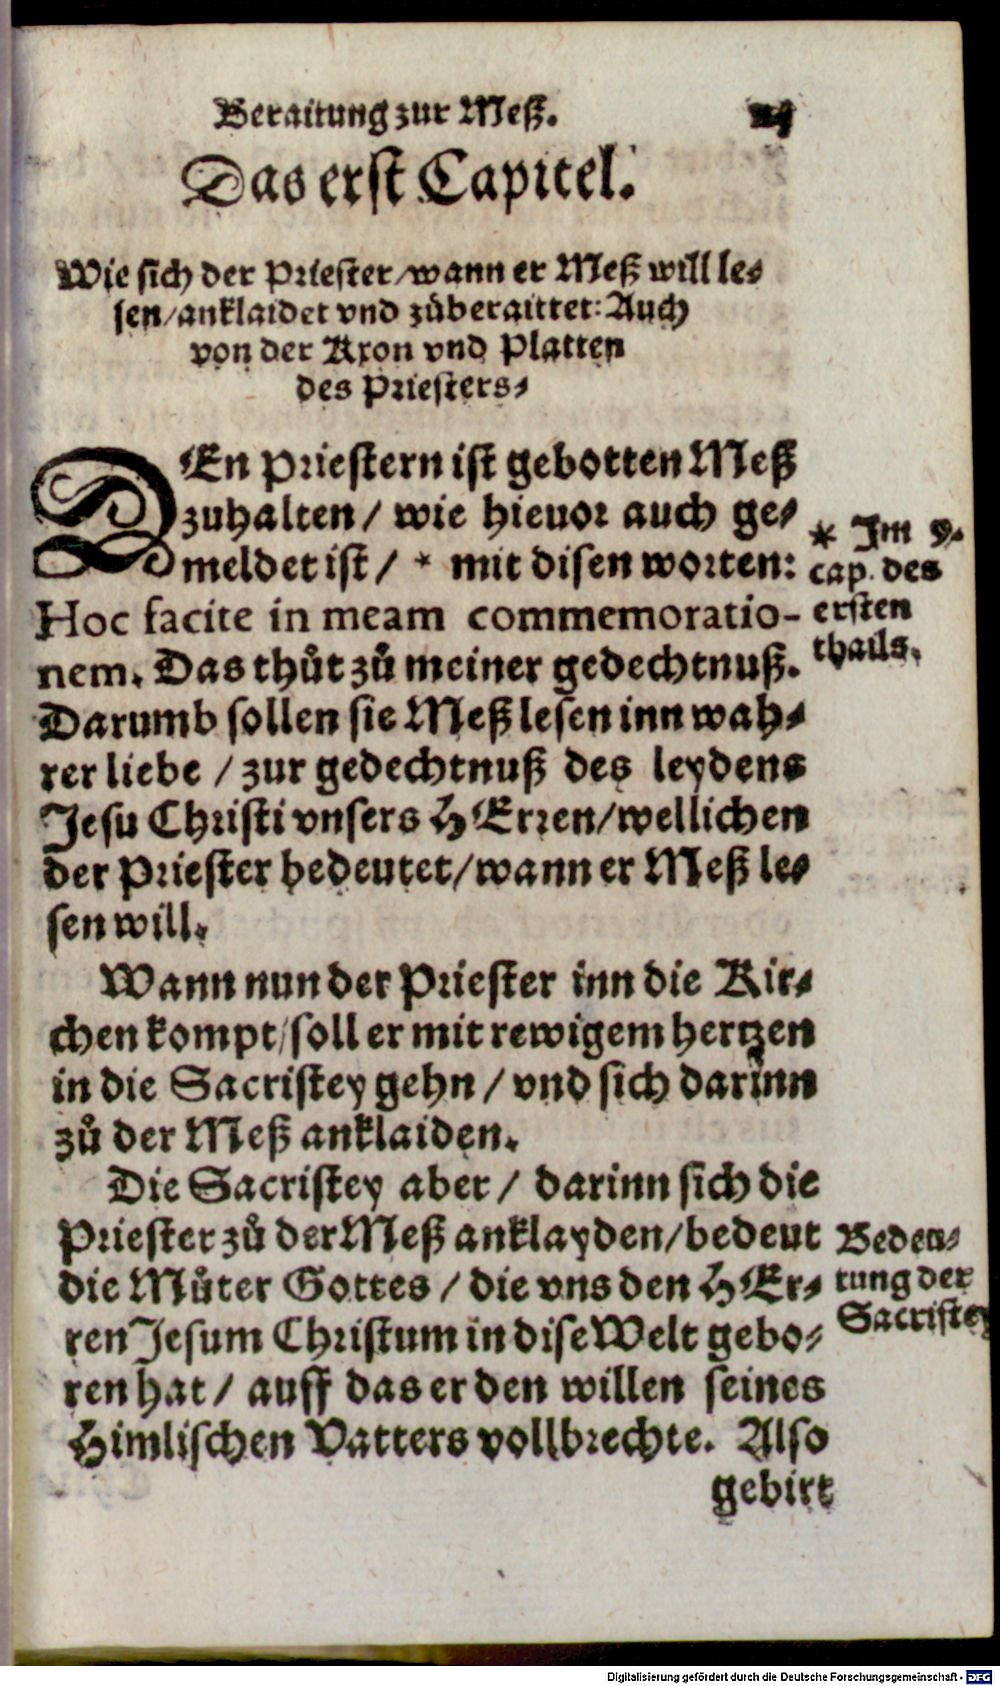 Beraitung zur Meß.
Das erst Capitel.
Wie sich der Priester/wann er Meß will le-
sen/anklaidet vnd zůberaittet: Auch
von der Kron vnd Platten
des Priesters.
DEn Priestern ist gebotten Meß
zuhalten / wie hieuor auch ge-
meldet ist / * mit disen worten:
* Im 9.
cap. des
ersten
thails.
Hoc facite in meam commemoratio-
nem. Das thůt zů meiner gedechtnuß.
Darumb sollen sie Meß lesen inn wah-
rer liebe / zur gedechtnuß des leydens
Jesu Christi vnsers HErren/wellichen
der Priester bedeutet/wann er Meß le-
sen will.
Wann nun der Priester inn die Kir-
chen kompt/soll er mit rewigem hertzen
in die Sacristey gehn / vnd sich darinn
zů der Meß anklaiden.
Die Sacristey aber / darinn sich die
Priester zů der Meß anklayden/bedeut
die Můter Gottes / die vns den HEr-
ren Jesum Christum in dise Welt gebo-
ren hat / auff das er den willen seines
Himlischen Vatters vollbrechte. Also
Bedeu-
tung der
Sacristey
gebirt
Digitalisierung gefördert durch die Deutsche Forschungsgemeinschaft - DFG